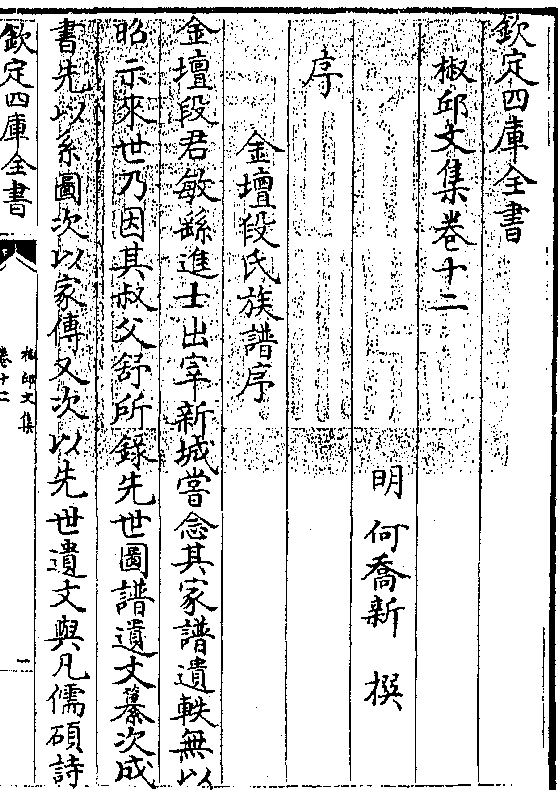 欽定四庫全書
椒邱文集卷十二
明 何喬新 撰
序
金壇段氏族譜序
金壇段君敏繇進士出宰新城嘗念其家譜遺軼無以
昭示來世乃因其叔父舒所錄先世圖譜遺文纂次成
書先以系圖次以家傳又次以先世遺文與凡儒碩詩
欽定四庫全書
椒邱文集
卷十二
一